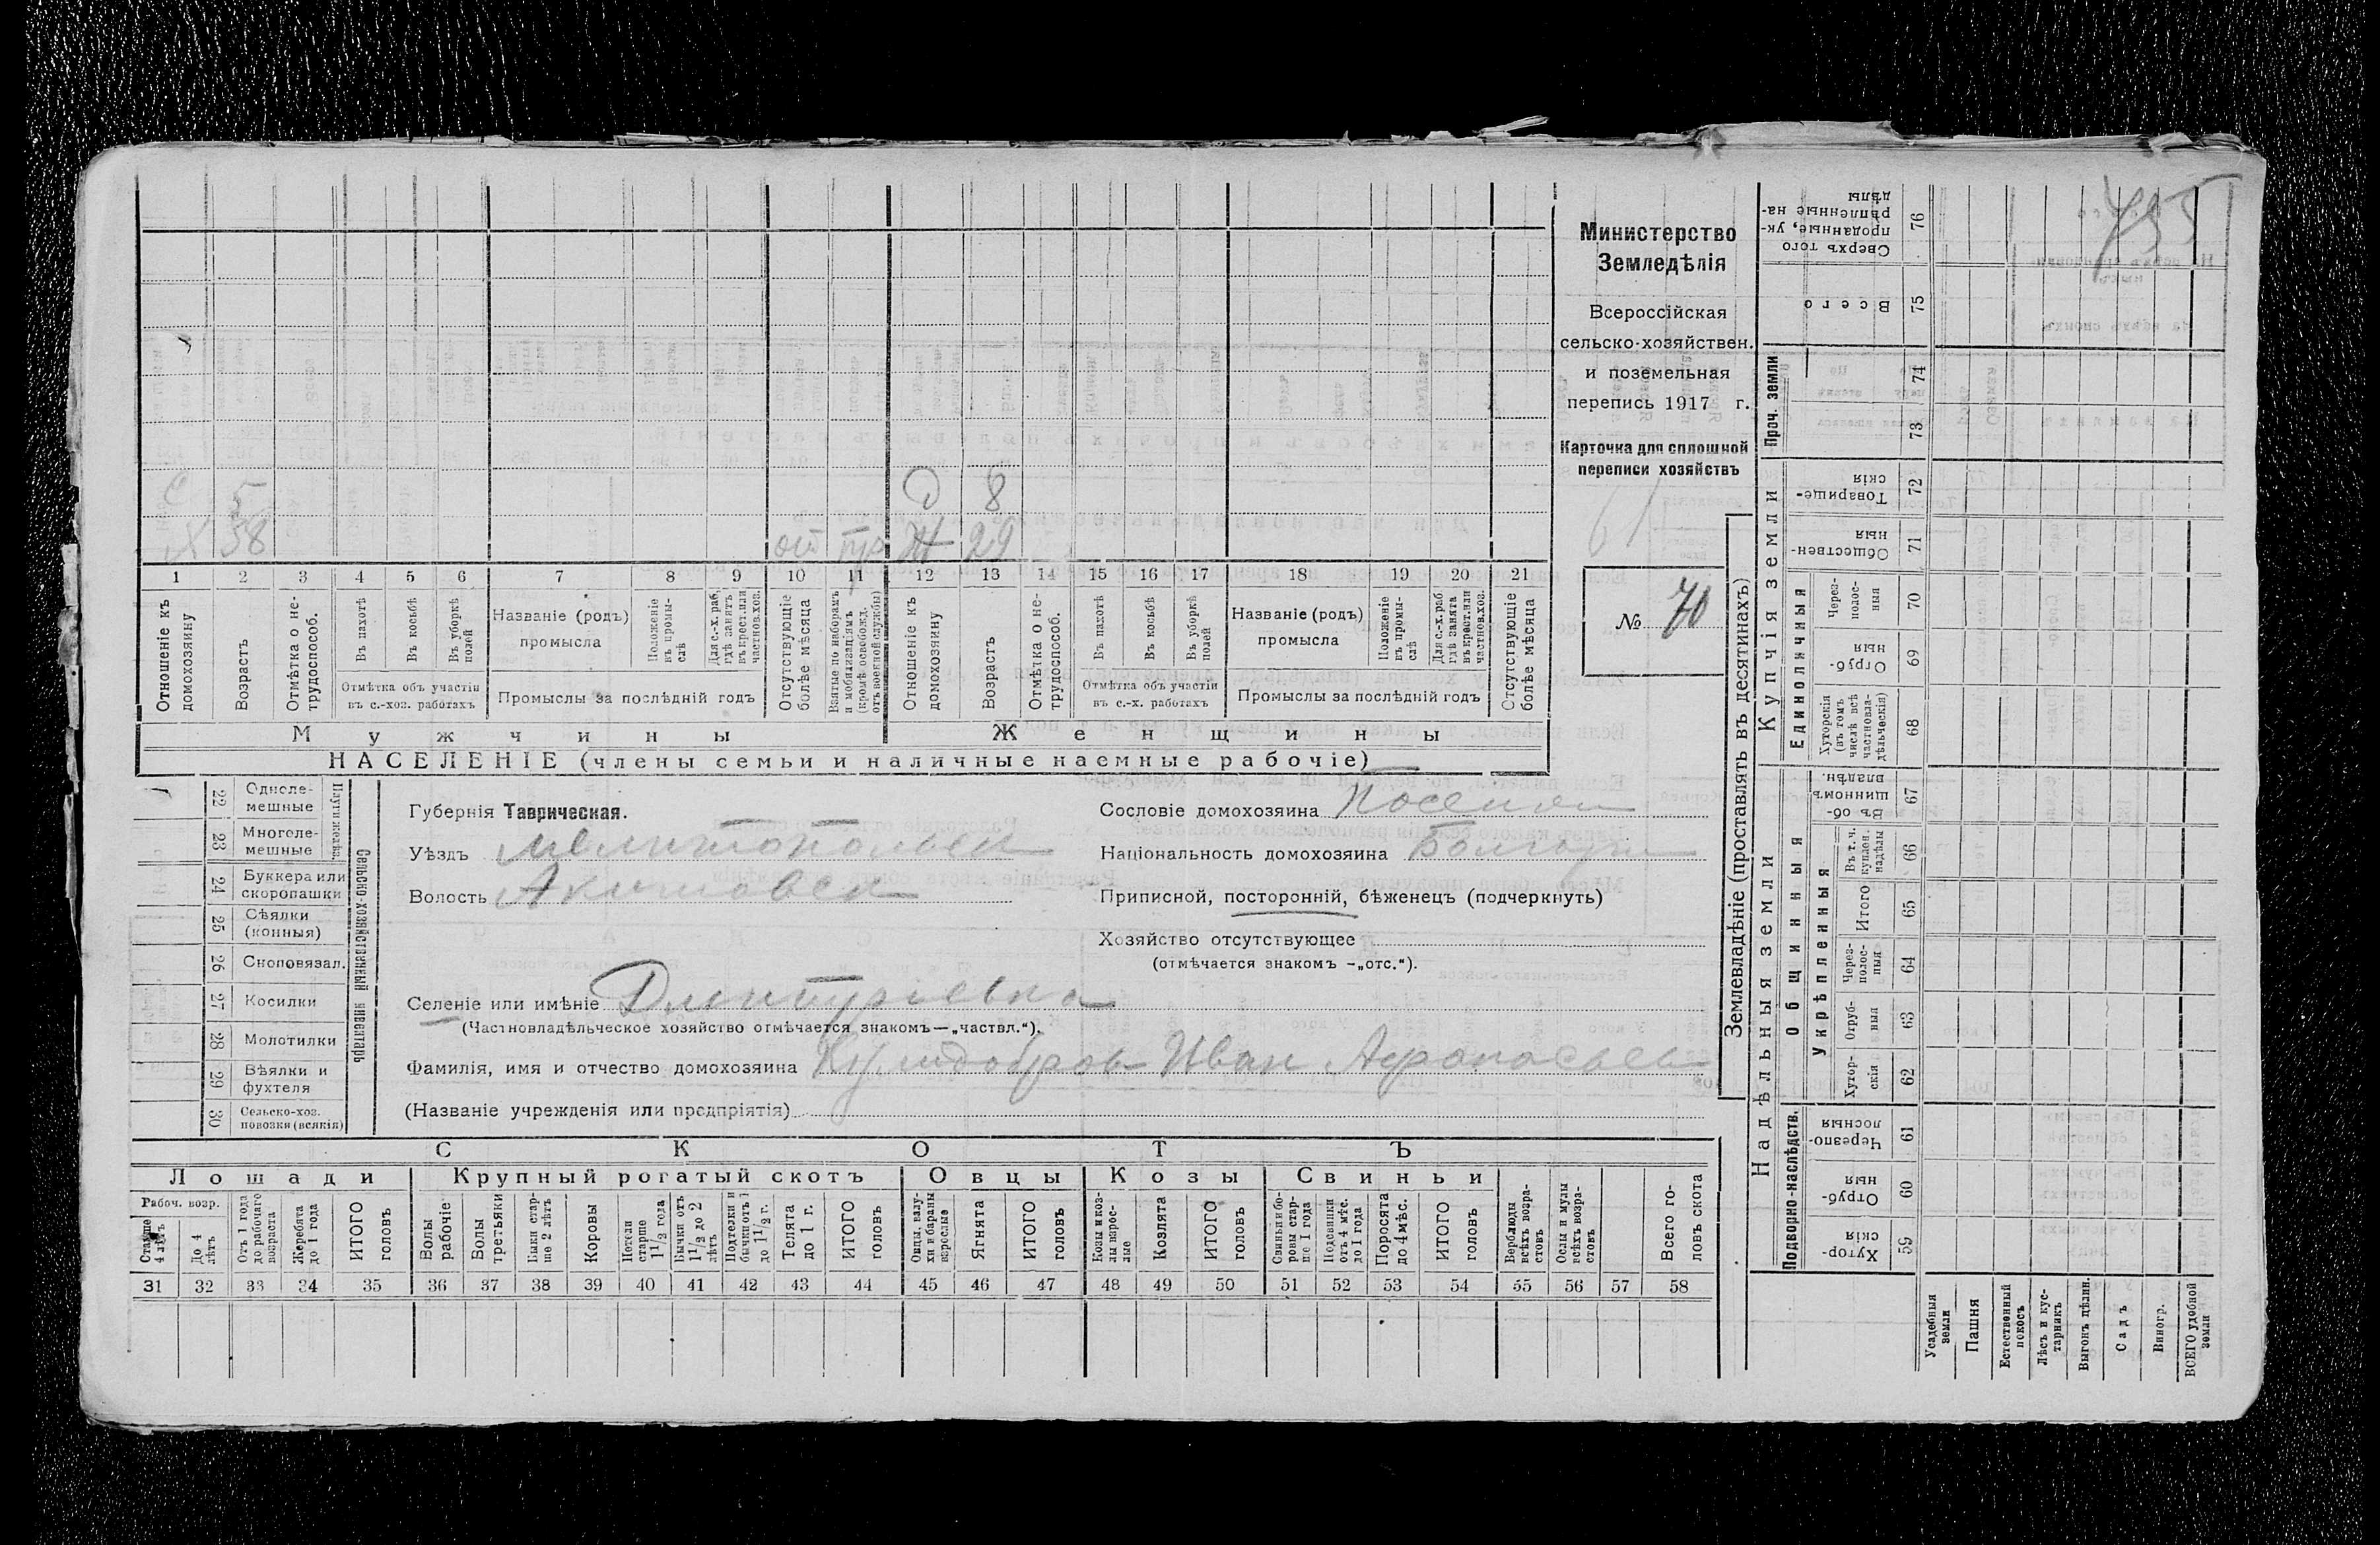 755
Министерство
Земледѣлія
Всероссійская
сельско-хозяйствен.
и поземельная
перепись 1917 г.
Карточка для сплошной
переписи хозяйствъ
61
№ 70
С 5 Д 8
Х 58 Ж 29
1 2 3 4 5 6 7 8 9 10 11 12 13 14 15 16 17 18 19 20 21
Отношеніе къ домохозяину
Возрастъ
Отмѣтка о не-трудоспособ.
Въ пахотѣ
Въ косьбѣ
Въ уборкѣ полей
Отмѣтка объ участіи
въ с.-хоз. работахъ
Названіе (родъ)
промысла
Положеніе въ промы-слѣ
Для с.-х. раб, гдѣ занятъ въ крест. или частнов. хоз.
Промыслы за послѣдній годъ
Отсутствующіе болѣе мѣсяца
Взятые по наборамъ и мобилизаціямъ (кромѣ освобожд. отъ военной службы)
Отношеніе къ домохозяину
Возрастъ
Отмѣтка о не-трудоспособ.
Въ пахотѣ
Въ косьбѣ
Въ уборкѣ полей
Отмѣтка объ участіи
въ с.-х. работахъ
Названіе (родъ)
промысла
Положеніе въ промы-слѣ
Для с.-х. раб гдѣ занята въ крест. или частнов. хоз.
Промыслы за послѣдній годъ
Отсутствующіе болѣе мѣсяца
Мужчины Женщины
НАСЕЛЕНІЕ (члены семьи и наличные наемные рабочіе)
22 Одноле-мешные
23 Многоле-мешные
24 Буккера или скоропашки
25 Сѣялки (конныя)
26 Сноповязал.
27 Косилки
28 Молотилки
29 Вѣялки и фухтеля
30 Сельско-хоз. повозки (всякія)
Плуги желѣз.
Сельско-хозяйственный инвентарь
Губернія Таврическая.
Уѣздъ Мелитопольск
Волость Акимовск
Сословіе домохозяина Поселян
Національность домохозяина Болгары
Приписной, посторонній, бѣженецъ (подчеркнуть)
Хозяйство отсутствующее
(отмѣчается знакомъ -„отс.“).
Селеніе или имѣніе Дмитріевка
(Частновладѣльческое хозяйство отмѣчается знакомъ—„частвл.“).
Фамилія, имя и отчество домохозяина Иван Афанасьев
(Названіе учрежденія или предпріятія)
СКОТЪ
Лошади Крупный рогатый скотъ Овцы Козы Свиньи
Рабоч. возр.
Старше 4 лѣтъ
До 4 лѣтъ
Отъ 1 года до рабочаго возраста
Жеребята до 1 года
ИТОГО головъ
Волы рабочіе
Волы третьяки
Быки стар-ше 2 лѣтъ
Коровы
Нетели старше 1 1/2 года
Бычки отъ 1 1/2 до 2 лѣтъ
Подтелки и бычки отъ 1 до 1 1/2 г.
Телята до 1 г.
ИТОГО головъ
Овцы, валу-хи и бараны взрослые
Ягнята
ИТОГО головъ
Козы и коз-лы взрос-лые
Козлята
ИТОГО головъ
Свиньи и бо-ровы стар-ше 1 года
Подсвинки отъ 4 мѣс. до 1 года
Поросята до 4 мѣс.
ИТОГО головъ
Верблюды всѣхъ возра-стовъ
Ослы и мулы всѣхъ возра-стовъ
Всего го-ловъ скота
31 32 33 34 35 36 37 38 39 40 41 42 43 44 45 46 47 48 49 50 51 52 53 54 55 56 57 58
Землевладѣніе (проставлять въ десятинахъ)
Надѣльныя земли
Купчія земли
Проч. земли
Подворно-наслѣдств.
Общинныя
Укрѣпленныя
Единоличныя
Хутор-скія 59
Отруб-ныя 60
Черезпо-лосныя 61
Хутор-скія 62
Отруб-ныя 63
Через-полос-ныя 64
Итого 65
Въ т. ч. куплен. надѣлы 66
Въ об-щинномъ владѣн. 67
Хуторскія (въ томъ числѣ всѣ частновла-дѣльческія) 68
Отруб-ныя 69
Через-полос-ныя 70
Обществен-ныя 71
Товарище-скія 72
73
74
Всего 75
Сверхъ того проданные, ук-рѣпленные на-дѣлы 76
Усадебныя земли
Пашня
Естественный покосъ
Лѣсъ и кус-тарникъ
Выгонъ цѣлин.
Садъ
Виногр.
ВСЕГО удобной земли